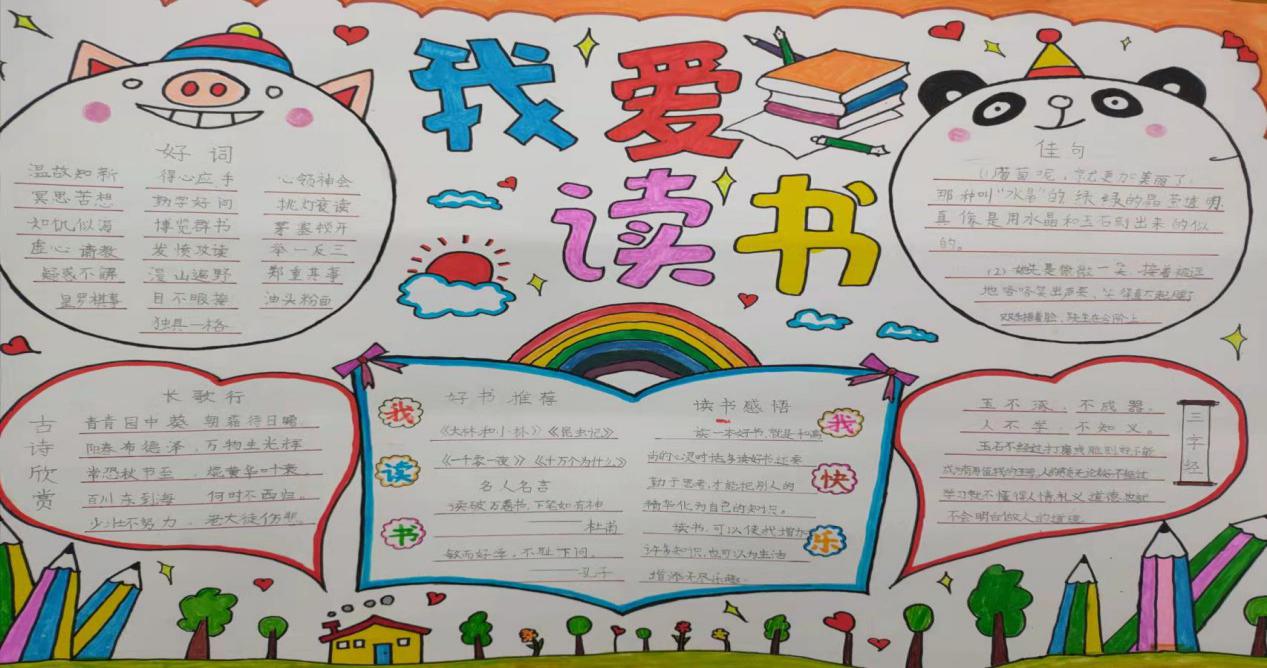 我爱
读书
好词
温故知新 得心应手 心领神会
冥思苦想 勤学好问 挑灯夜读
知识似海 博览群书 茅塞顿开
虚心请教 发愤攻读 举一反三
疑惑不解 漫山遍野 郑重其事
星罗棋布 目不暇接 油头粉面
独具一格
佳句
那种叫“水晶”的 绿绿的晶莹透明
真像是用水晶和玉石刻出来的似
的。
古诗欣赏
长歌行
青青园中葵 朝露待日晞
阳春布德泽，万物生光辉
常恐秋节至 焜黄华叶衰
百川东到海 何时不西归。
少壮不努力，老大徒伤悲。
我读书
好书推荐
《大林和小林》《昆虫记》
《一千零一夜》《十万个为什么》
名人名言
读破万卷书，下笔如有神
——杜甫
敏而好学，不耻下问。
——孔子
读书感悟
读一本好书，就是和高
勤于思考，才能把别人的
精华化为自己的知识。
读书，可以使我增加
许多知识，也可以为生活
增添不尽乐趣。
我快乐
三字经
玉不琢，不成器。
人不学，不知义。
学习就不懂得人情礼义道德
不会明白做人的道理